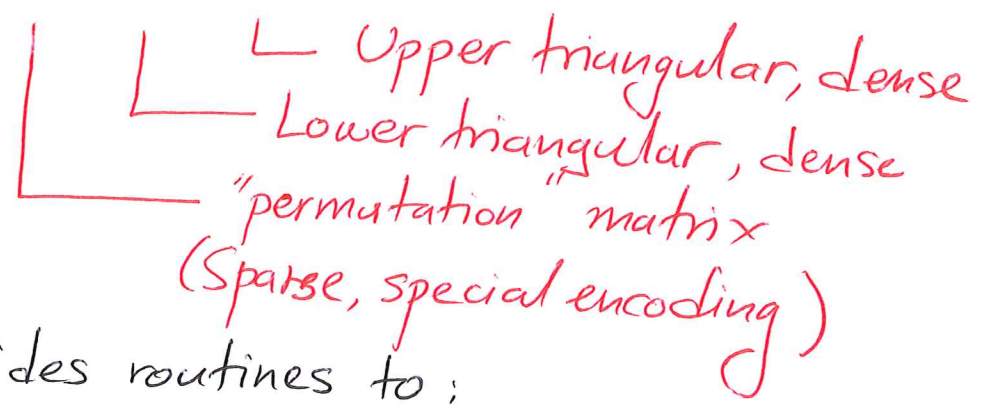 Upper triangular, dense
Lower triangular, dense
"permutation" matrix
(Sparse, special encoding)
des routines to: